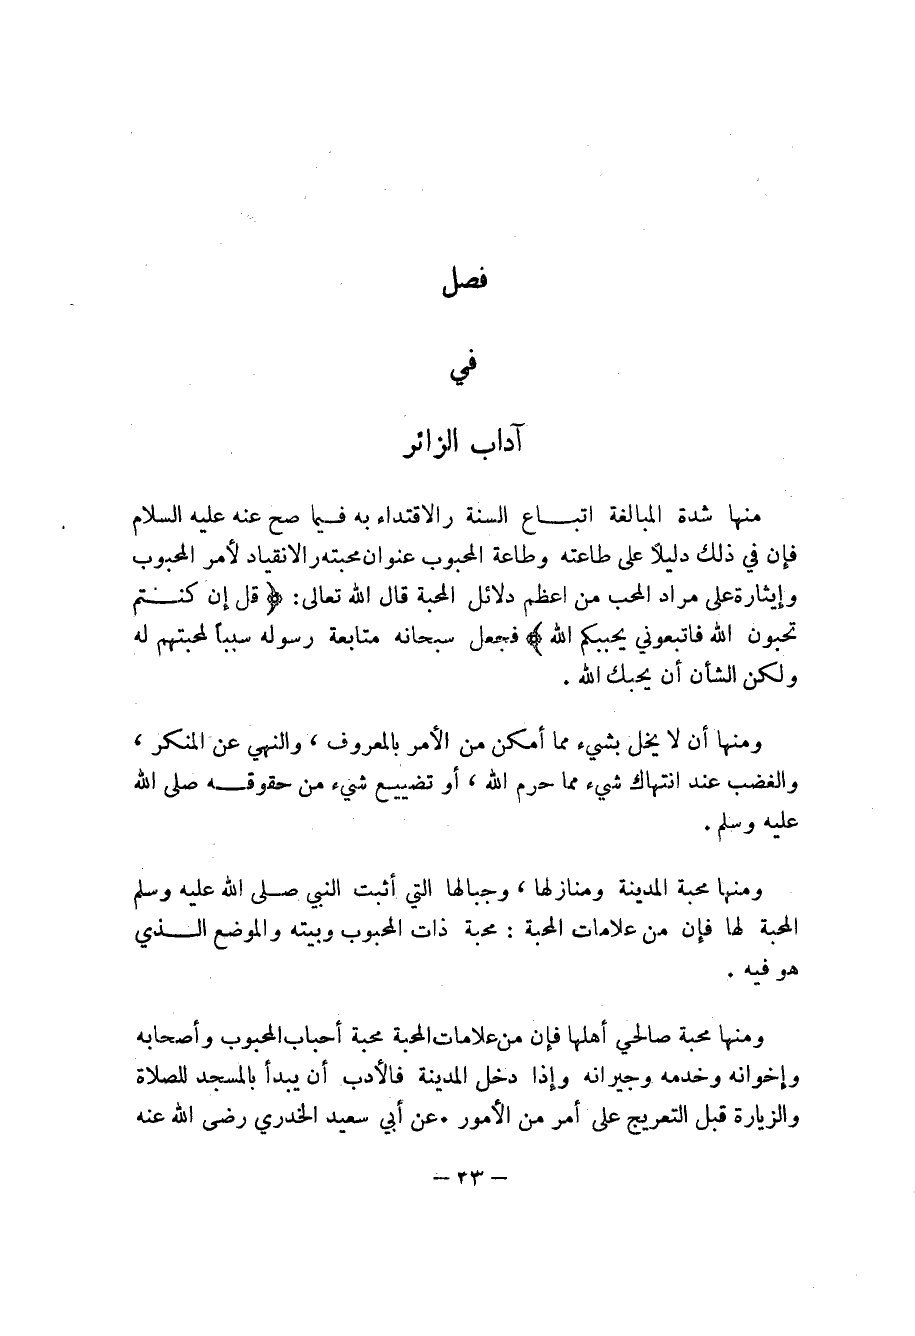 فصل
في
آداب الزائر
منها شدة المبالغة اتبـــاع السنة والاقتداء به فـيا صح عنه عليه السلام
فإن في ذلك دليلاً على طاعته وطاعة المحبوب عنوان محبته والانقياد لأمر المحبوب
وإيثارة على مراد المحب من اعظم دلائل المحبة قال الله تعالى: ﴿ قل إن كنــتم
تحبون الله فاتبعوني يحببكم الله ﴾ فجعل سبحانه متابعة رسوله سبباً لمحبتهم له
ولكن الشأن أن يحبك الله .
ومنها أن لا يخل بشيء مما أمكن من الأمر بالمعروف ، والنهي عن المنكر ،
والغضب عند انتهاك شيء مما حرم الله ، أو تضييع شيء من حقوقــه صلى الله
عليه وسلم .
ومنها محبة المدينة ومنازلها ، وجبالها التي أثبت النبي صلى الله عليه وسلم
المحبة لها فإن من علامات المحبة : محبة ذات المحبوب وبيته والموضع الــذي
هو فيه .
ومنها محبة صالحي أهلها فإن من علامات المحبة محبة أحباب المحبوب وأصحابه
وإخوانه وخدمه وجيرانه وإذا دخل المدينة فالأدب أن يبدأ بالمسجد للصلاة
والزيارة قبل التعريج على أمر من الأمور . عن أبي سعيد الخدري رضى الله عنه
– ٢٣ –